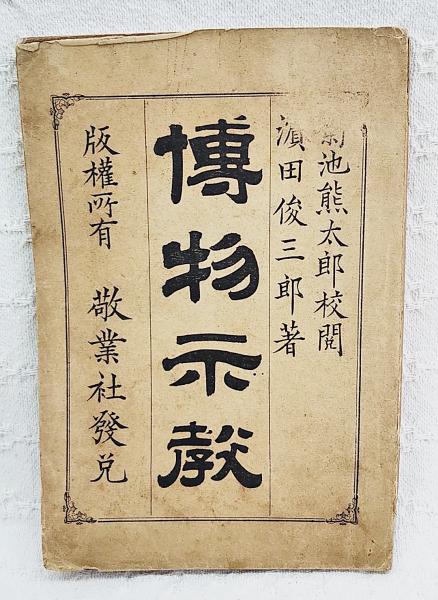 菊池熊太郎校閲
濵田俊三郎著
博物示教
版權所有 敬業社發兌